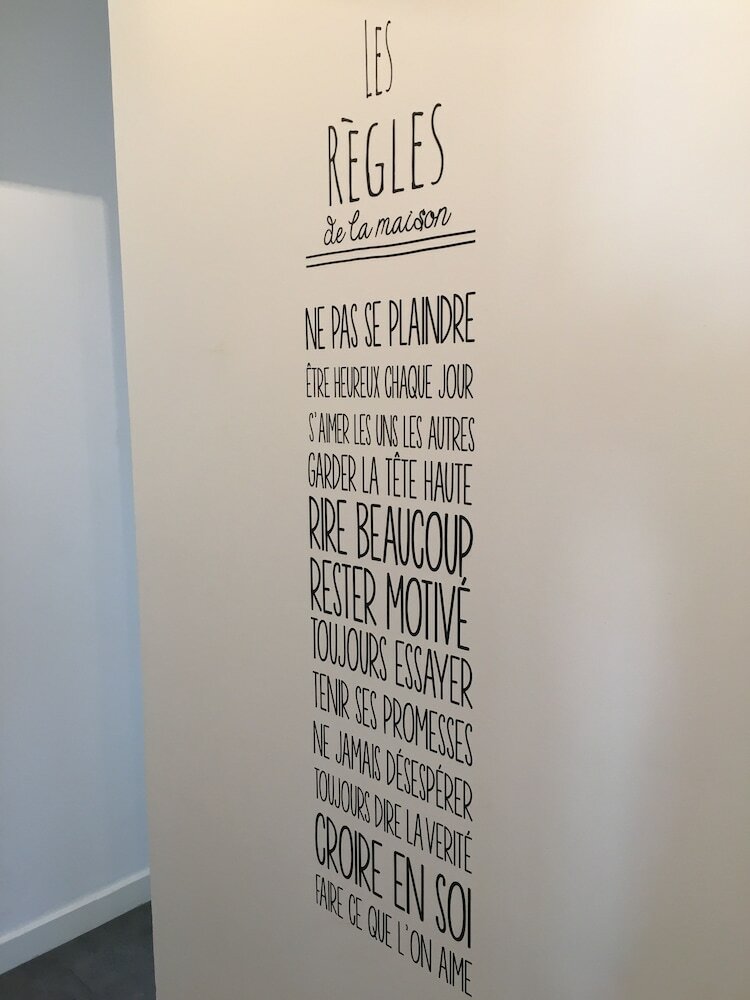 LES
RÈGLES
de la maison
NE PAS SE PLAINDRE
ÊTRE HEUREUX CHAQUE JOUR
S'AIMER LES UNS LES AUTRES
GARDER LA TÊTE HAUTE
RIRE BEAUCOUP
RESTER MOTIVÉ
TOUJOURS ESSAYER
TENIR SES PROMESSES
NE JAMAIS DÉSESPÉRER
TOUJOURS DIRE LA VERITÉ
CROIRE EN SOI
FAIRE CE QUE L'ON AIME